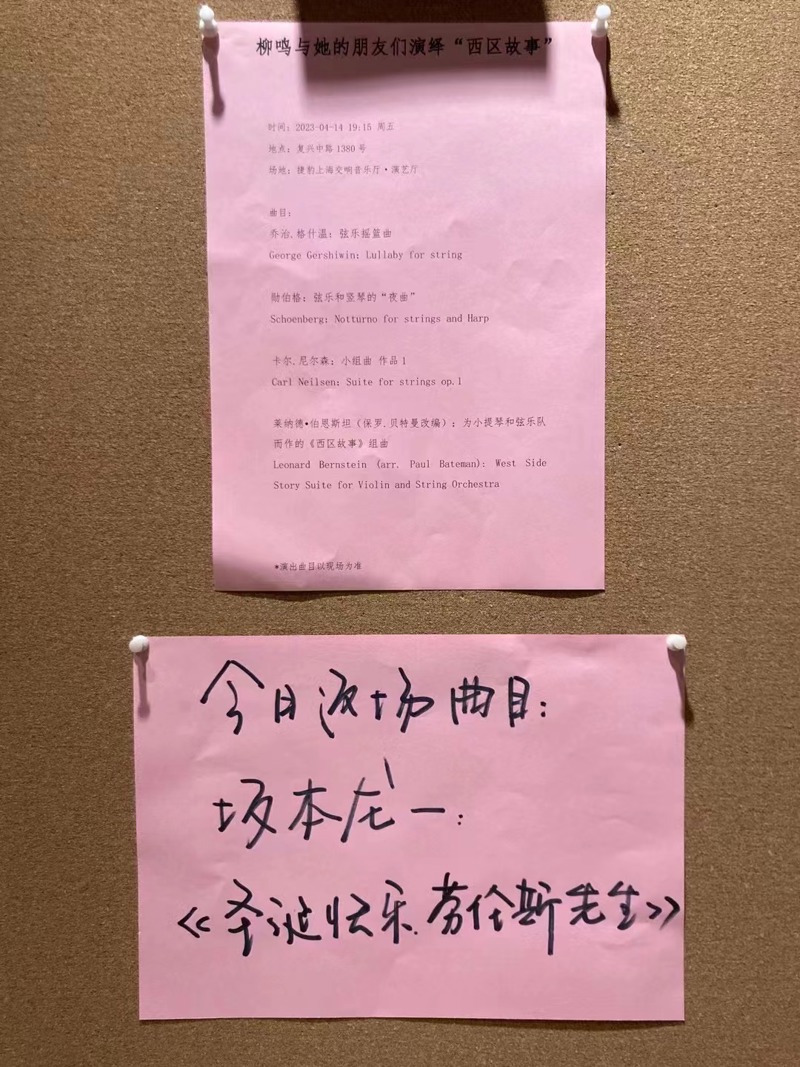 柳鸣与她的朋友们演绎“西区故事”
时间：2023-04-14 19:15 周五
地点：复兴中路 1380 号
场地：捷豹上海交响音乐厅·演艺厅
曲目：
乔治.格什温：弦乐摇篮曲
George Gershiwin: Lullaby for string
勋伯格：弦乐和竖琴的“夜曲”
Schoenberg: Notturno for strings and Harp
卡尔.尼尔森：小组曲 作品 1
Carl Neilsen: Suite for strings op.1
莱纳德•伯恩斯坦（保罗.贝特曼改编）：为小提琴和弦乐队
而作的《西区故事》组曲
Leonard Bernstein (arr. Paul Bateman): West Side
Story Suite for Violin and String Orchestra
*演出曲目以现场为准
今日返场曲目：
坂本龙一：
《圣诞快乐.劳伦斯先生》